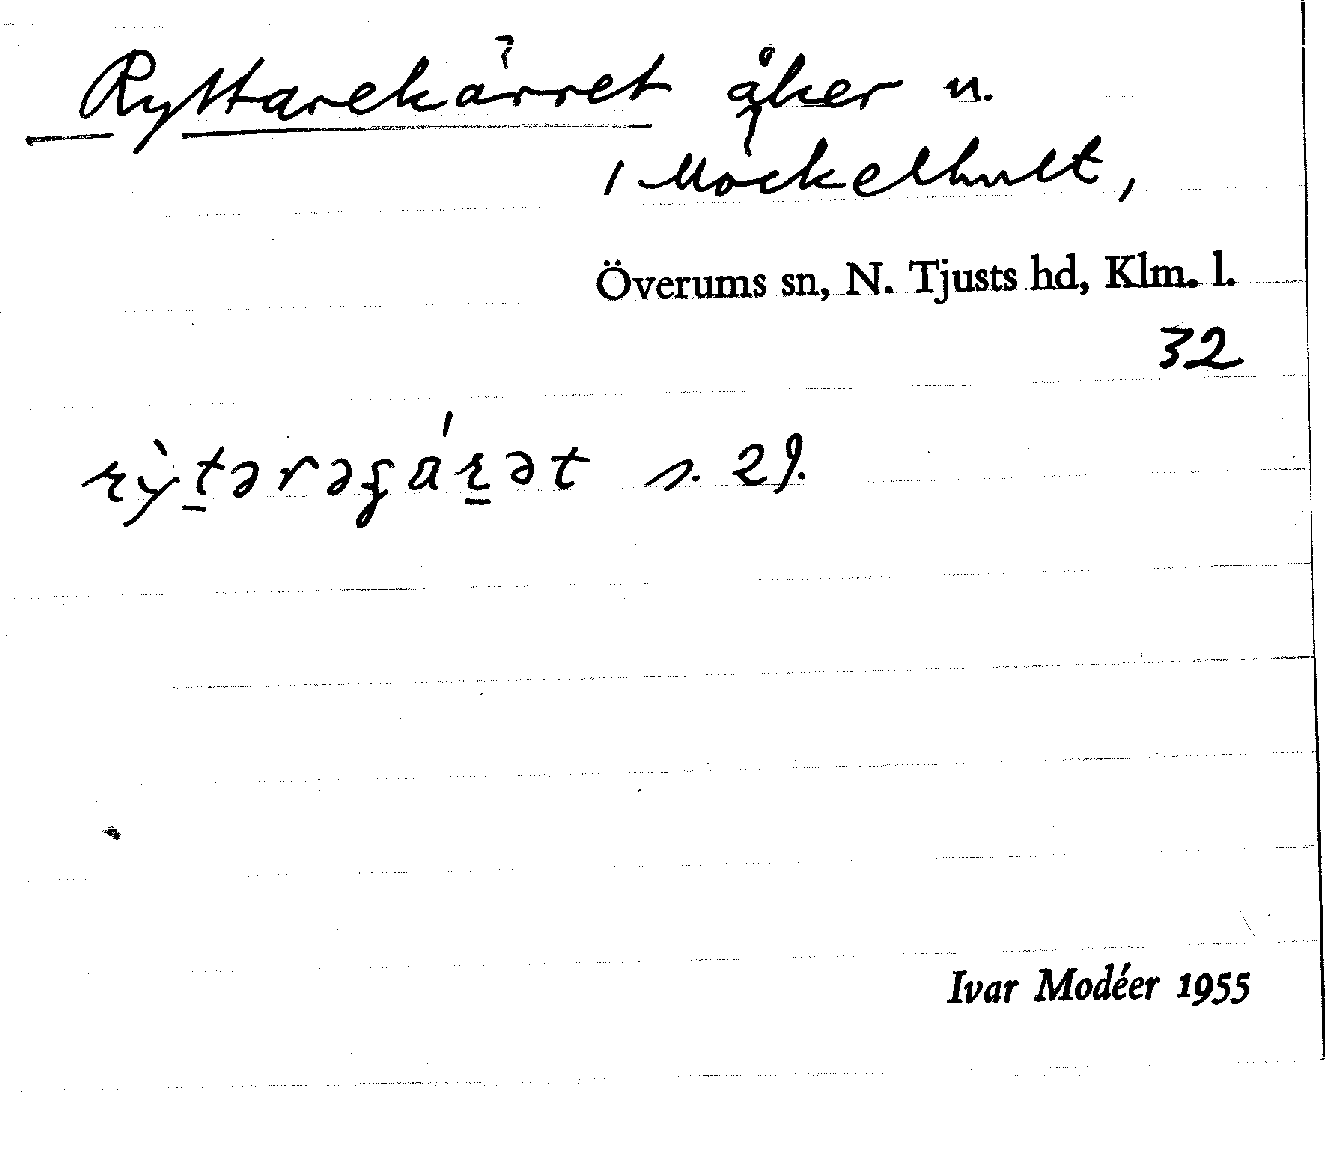 Ryttarekärret åker n.
i Möckelhult,
Överums sn, N. Tjusts hd, Klm. l.
32
s. 29.
Ivar Modéer 1955